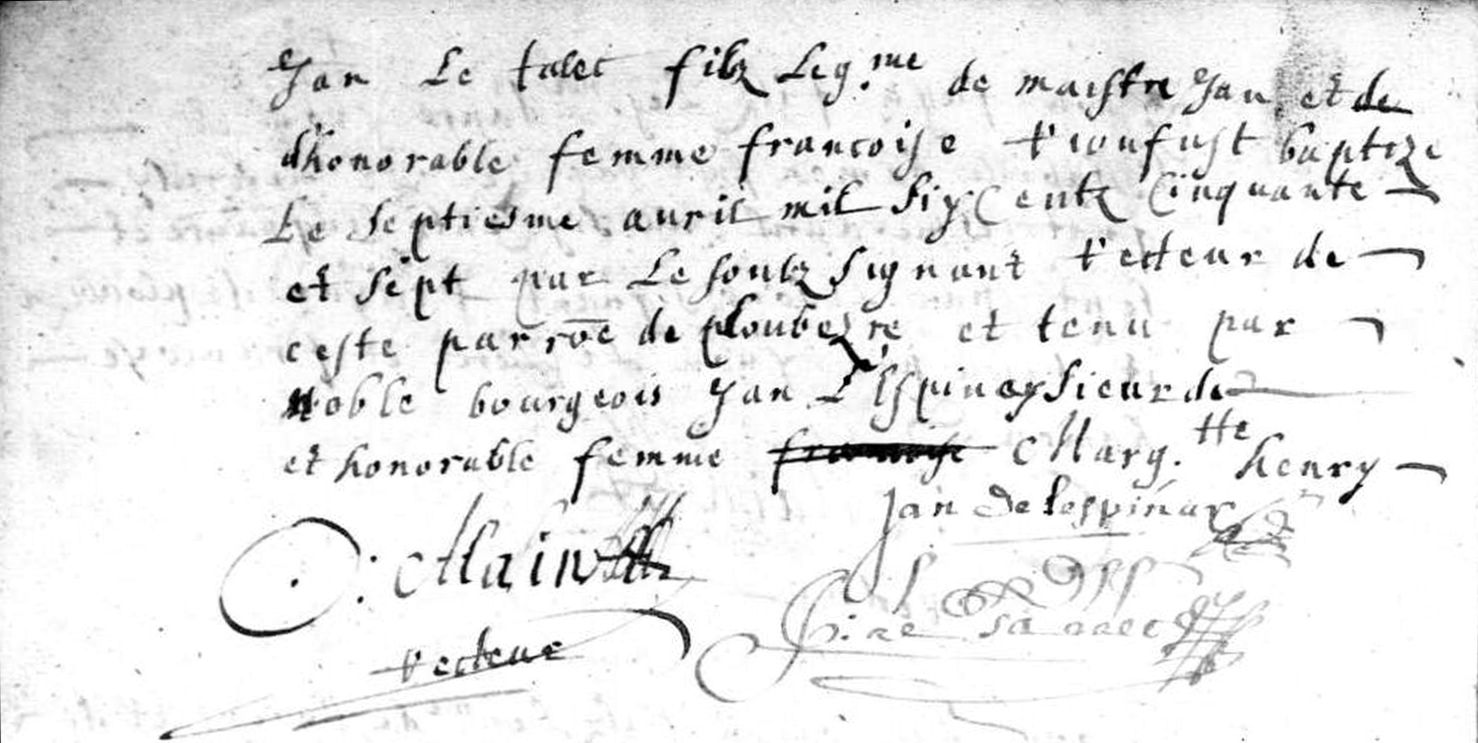 Jan Le talec filz Leg.me de maistre Jan et de
dhonorable femme francoise riou fust baptize
Le septiesme auril mil six centz Cinquante
et sept par Le soubz signant recteur de
ceste parroe de ploubezre et tenu par
Noble bourgeois Jan L'Espinay sieur de
et honorable femme francoise Marg.tte henry
Jan de lespinay
recteur